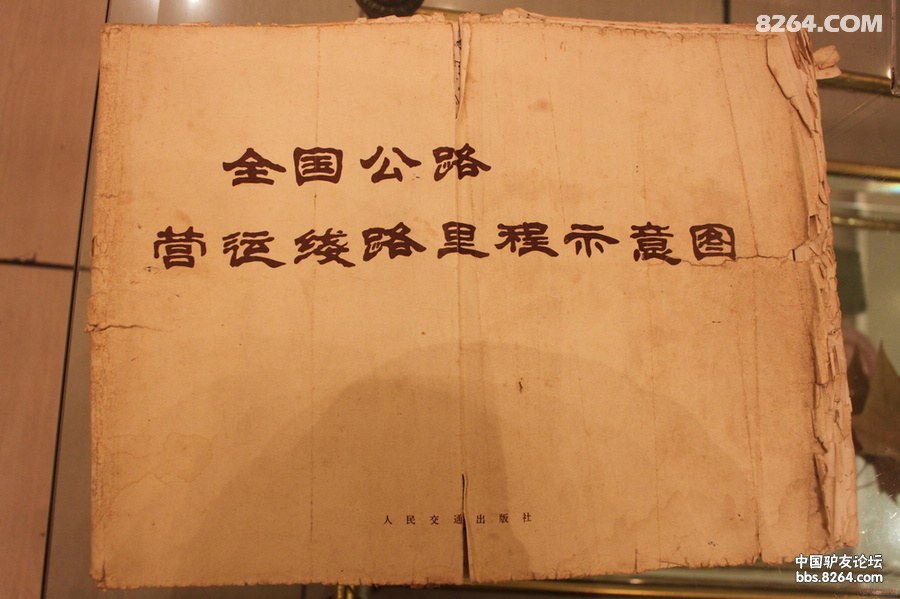 8264.COM
全国公路
营运线路里程示意图
人民交通出版社
中国驴友论坛
bbs.8264.com